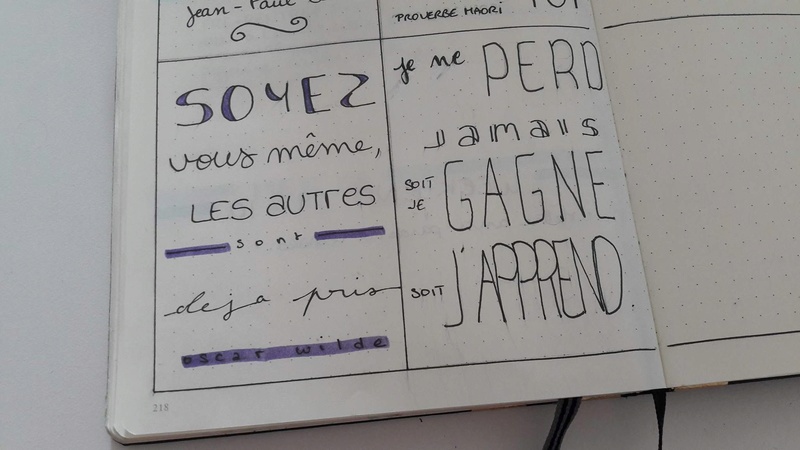 Jean-Paul
PROVERBE MAORI
SOYEZ
vous même,
LES AUTRES
sont
deja pris
oscar wilde
je ne PERD
Jamais
SOIT JE GAGNE
SOIT J'APPREND.
218